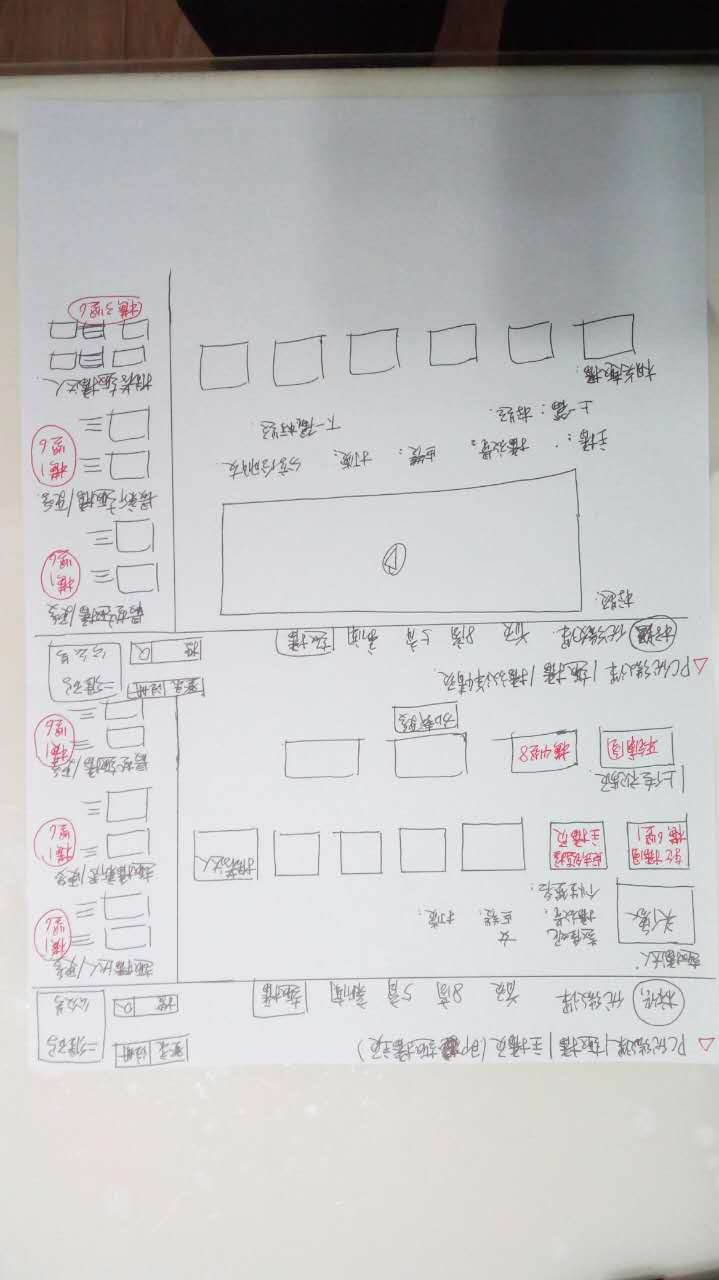 △ PC优微课|趣播|主播页(即趣播主页)
登录 注册
二维码
公众号
标识 优微课 首页 8商 5育 新闻 趣播
搜 Q
趣播达人
头像
女
播放量: 点赞: 打赏:
个性签名:
轮播图
横6竖1
点击链接
主播页
推荐达人
上传视频
平铺图
横4竖8
加载更多
趣播达人/更多
横1
竖6
趣播新秀/更多
横1
竖6
最热趣播/更多
横1
竖6
△ PC优微课|趣播|播放详情页
登录 注册
二维码
公众号
标题 优微课 首页 8商 5育 新闻 趣播
搜 Q
标题:
主播: 播放量: 点赞: 打赏: 分享给朋友
上一篇: 标题 下一篇标题
相关趣播:
最热趣播/更多
横1
竖6
最新趣播/更多
横1
竖6
推荐趣播达人
横3竖6